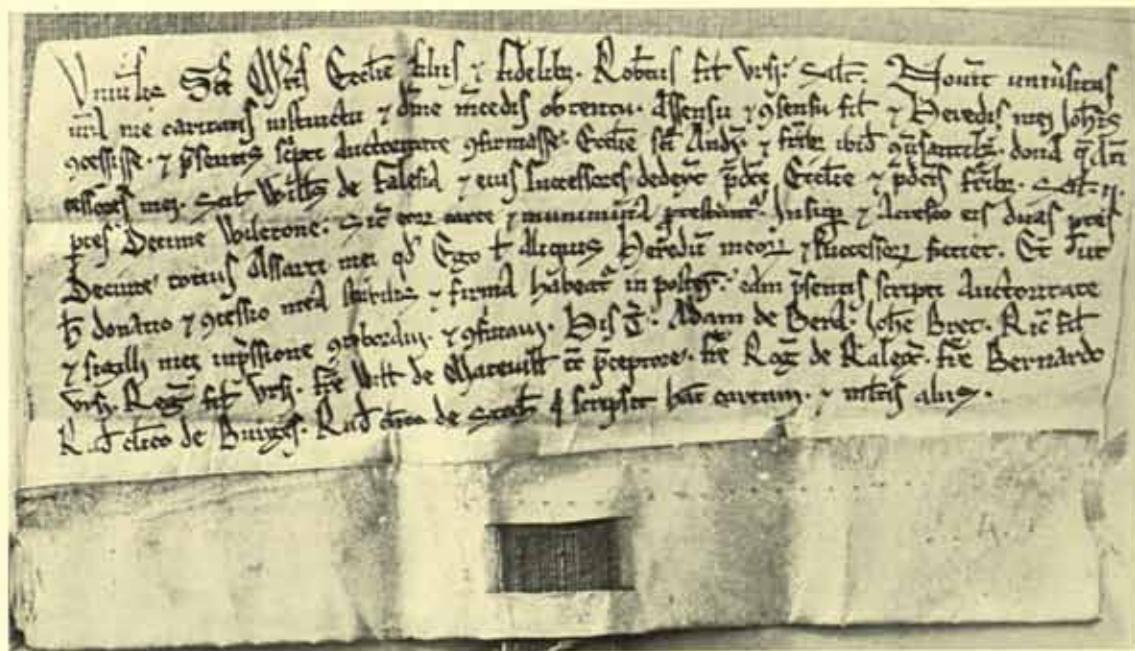 Uniu'sis Sc̄e Mr̄is Eccl'ie filiis ⁊ fidelib;. Rob't'us fil' Vrsi. Sal't. Nou'it uniu'sitas
ur̄a me caritatis instinctu ⁊ diuine m'cedis obtentu. Assensu ⁊ ꝯsensu fil' ⁊ Heredis mei Ioh'is
ꝯcessisse. ⁊ p'sentis sc'pti auctoritate ꝯfirmasse. Eccl'ie sc̄i Andr' ⁊ fr'ib; ibid' donā
cessores mei. Scil' Will's de Falesia ⁊ eius successores dedert' p'dc̄e Eccl'ie ⁊ p'dc̄is fr'ib;. Scil' ii.
partes Decime Wiletone. Sic' eor' carte ⁊ munim'ta Insup' ⁊ ꝯcesso eis duas partes
Decime totius Assarti mei qd' Ego l' Aliquis Heredū meor' ⁊ successor' faciet. Et Vt
h' donatio ⁊ ꝯcessio mea stabilis ⁊ firma habeat' in post'um. eam p'sentis scripti auctoritate
⁊ sigilli mei inp'ssione ꝯroboraui. ⁊ ꝯfirmaui. His T'. Adam de Ioh'e Bret. Ric' fil'
Vrsi. Reg' fil' Vrsi. fr'e Will' de p'ceptore. fr'e Rog' de fr'e Bernardo
Rad' cl'ico de Rad' cl'ico de q' scripsit hanc cartam. ⁊ mltis aliis.